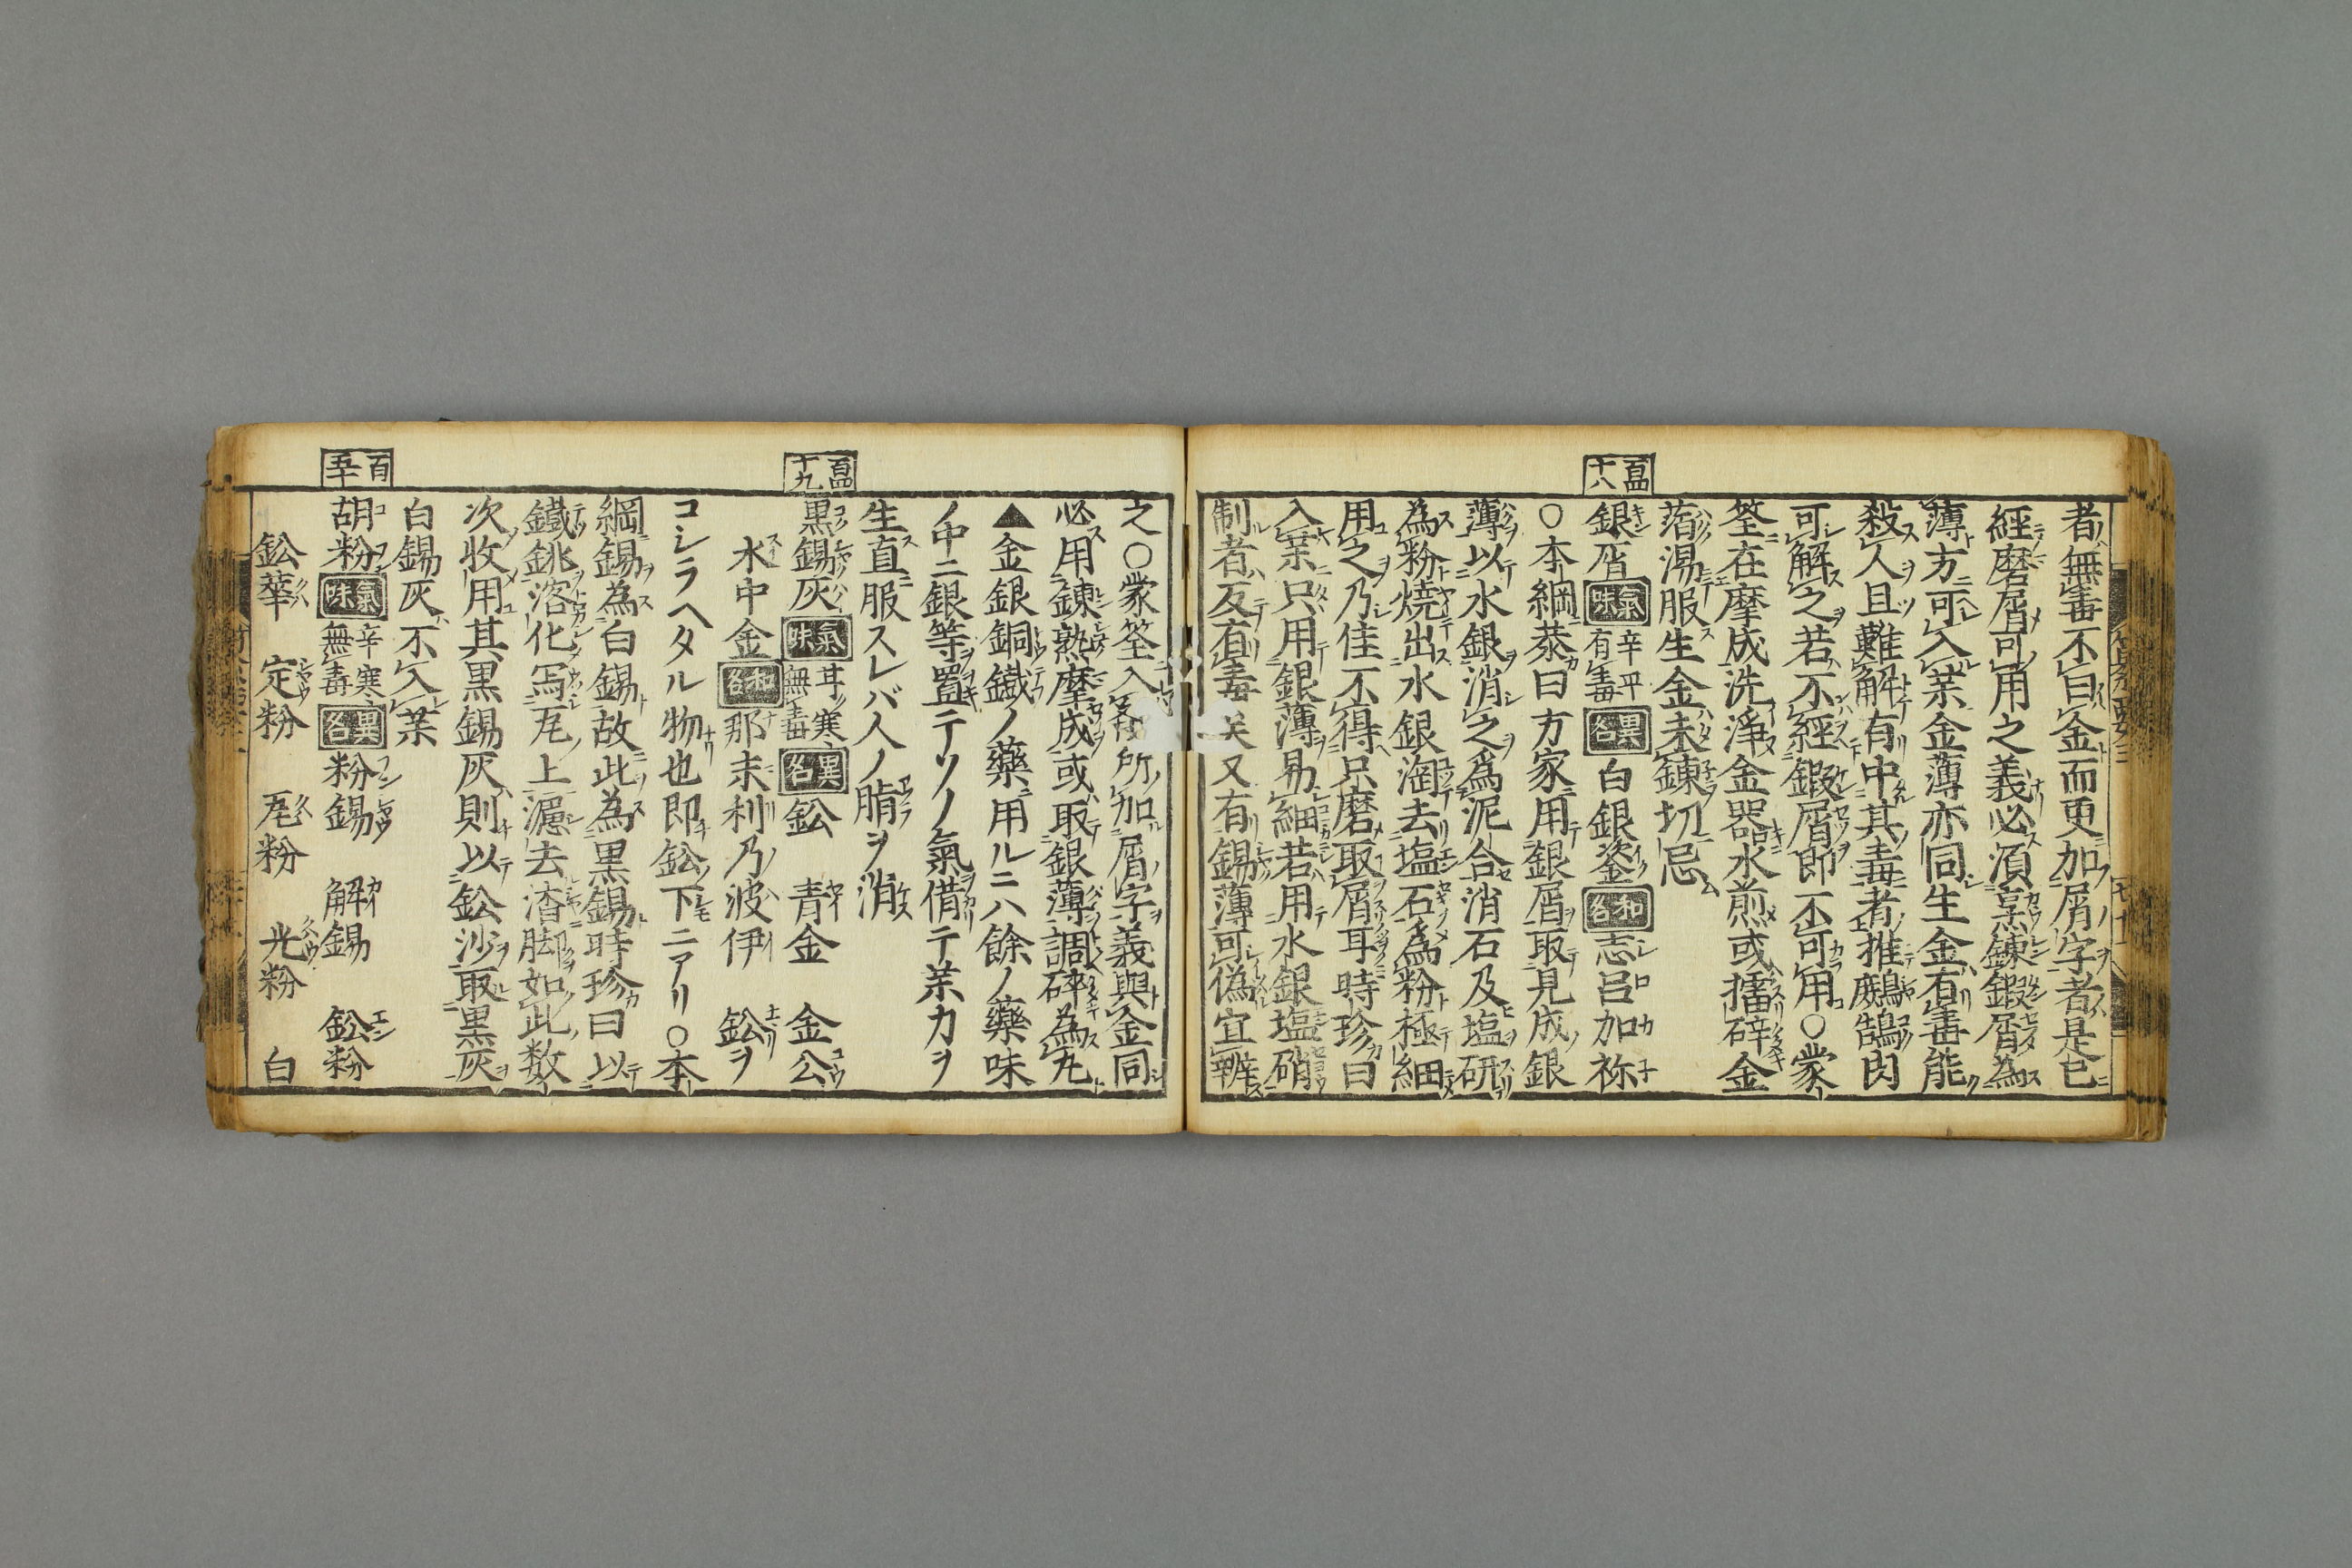 者無毒不曰金而更加屑字者是已
經磨屑可用之義必須烹錬鍜屑為
薄方可入薬金薄亦同生金有毒能
殺人且難解有中其毒者推鷓鴣肉
可解之若不經鍜屑即不可用○蒙
筌在摩成洗浄金器水煎或擂碎金
萡湯服生金未錬切忌
百四十八
銀屑 氣味 辛平有毒 異名 白銀 鋈 和名 志呂加祢
○本綱恭曰方家用銀屑取見成銀
薄以水銀消之為泥合消石及塩研
為粉燒出水銀淘去塩石為粉極細
用之乃佳不得只磨取屑耳時珍曰
入薬只用銀薄易細若用水銀塩硝
制者反有毒矣又有錫薄可偽宜辨
之○蒙筌入所加屑字義與金同
必用錬熟摩成或取銀薄調碎為丸
▲金銀銅鐵ノ藥ニ用ルニハ餘ノ藥味
ノ中ニ銀等置テソノ氣借テ薬力ヲ
生直服スレバ人ノ脂ヲ消
百四十九
黒錫灰 氣味 甘寒無毒 異名 鈆 青金 金公
水中金 和名 那末利乃波伊 鈆ヲ
コシラヘタル物也即鈆下ニアリ○本
綱錫為白錫故此為黒錫時珍曰以
鐵銚溶化写瓦上濾去渣脚如此数
次收用其黒錫灰則以鈆沙取黒灰
白錫灰不入薬
百五十
胡粉 氣味 辛寒無毒 異名 粉錫 解錫 鈆粉
鈆華 定粉 瓦粉 光粉 白